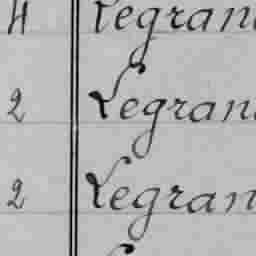 4 Legran
2 Legran
2 Legran